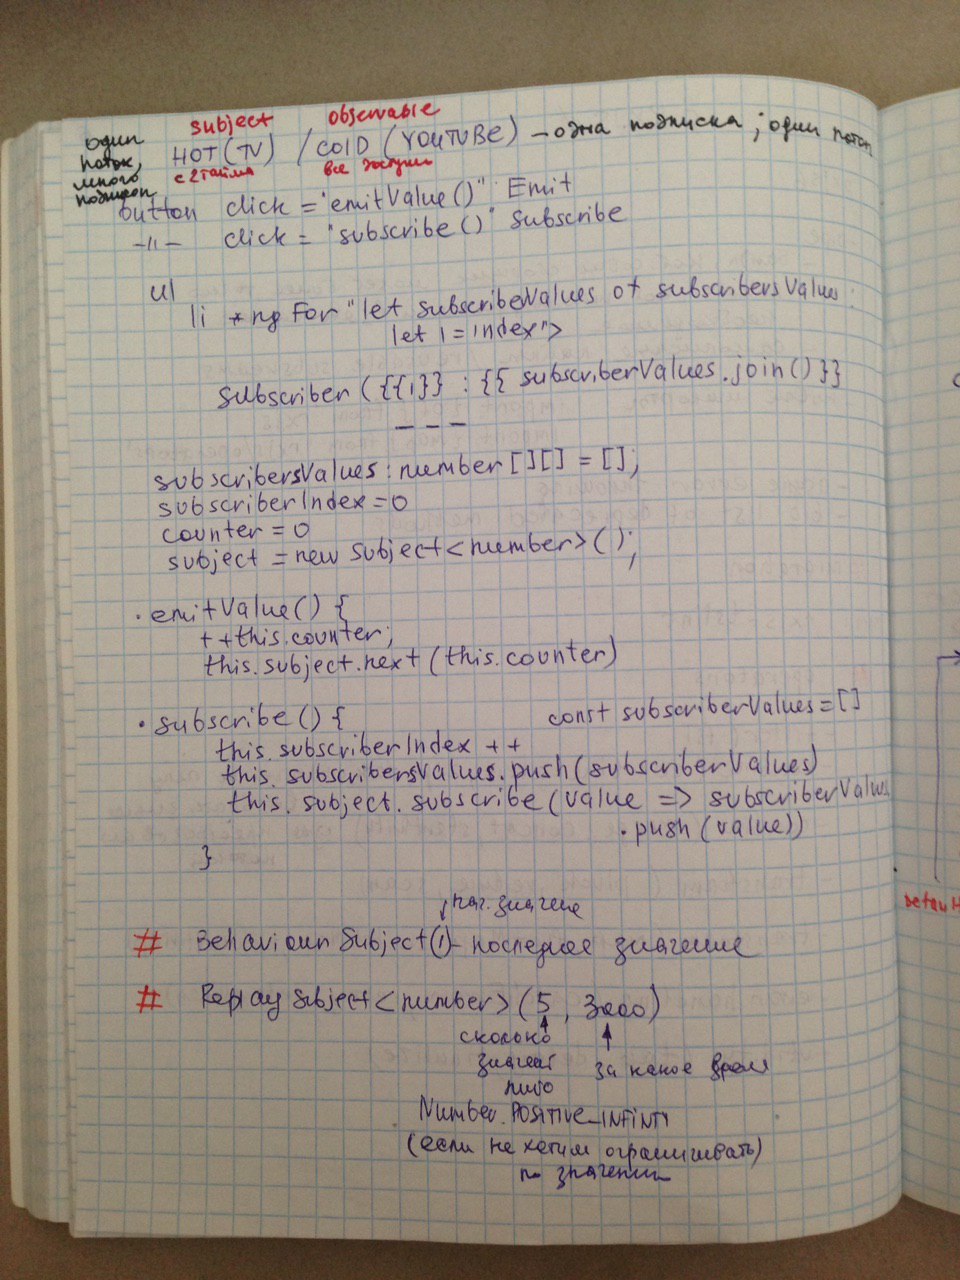 subject observable
один поток, много подписок
HOT (TV) / COLD (YOUTUBE) – одна подписка ; один поток
с 2 тайма все доступн
button click = "emitValue()" Emit
-||- click = "subscribe()" subscribe
ul
li *ngFor "let subscribeValues of subscribersValues
let i = index">
Subscriber ({{i}} : {{ subscriberValues.join() }}
– – –
subscribersValues : number [][] = [];
subscriberIndex = 0
counter = 0
subject = new Subject<number>();
· emitValue() {
++this.counter;
this.subject.next (this.counter)
· subscribe() { const subscriberValues = []
this.subscriberIndex ++
this.subscribersValues.push(subscriberValues)
this.subject.subscribe (value => subscriberValues
.push (value))
}
нач. значение
# Behaviour Subject(1) – последнее значение
# Replay Subject<number> (5, 3000)
сколько
значен за какое время
либо
Number.POSITIVE_INFINITY
(если не хотим ограничивать)
по значению